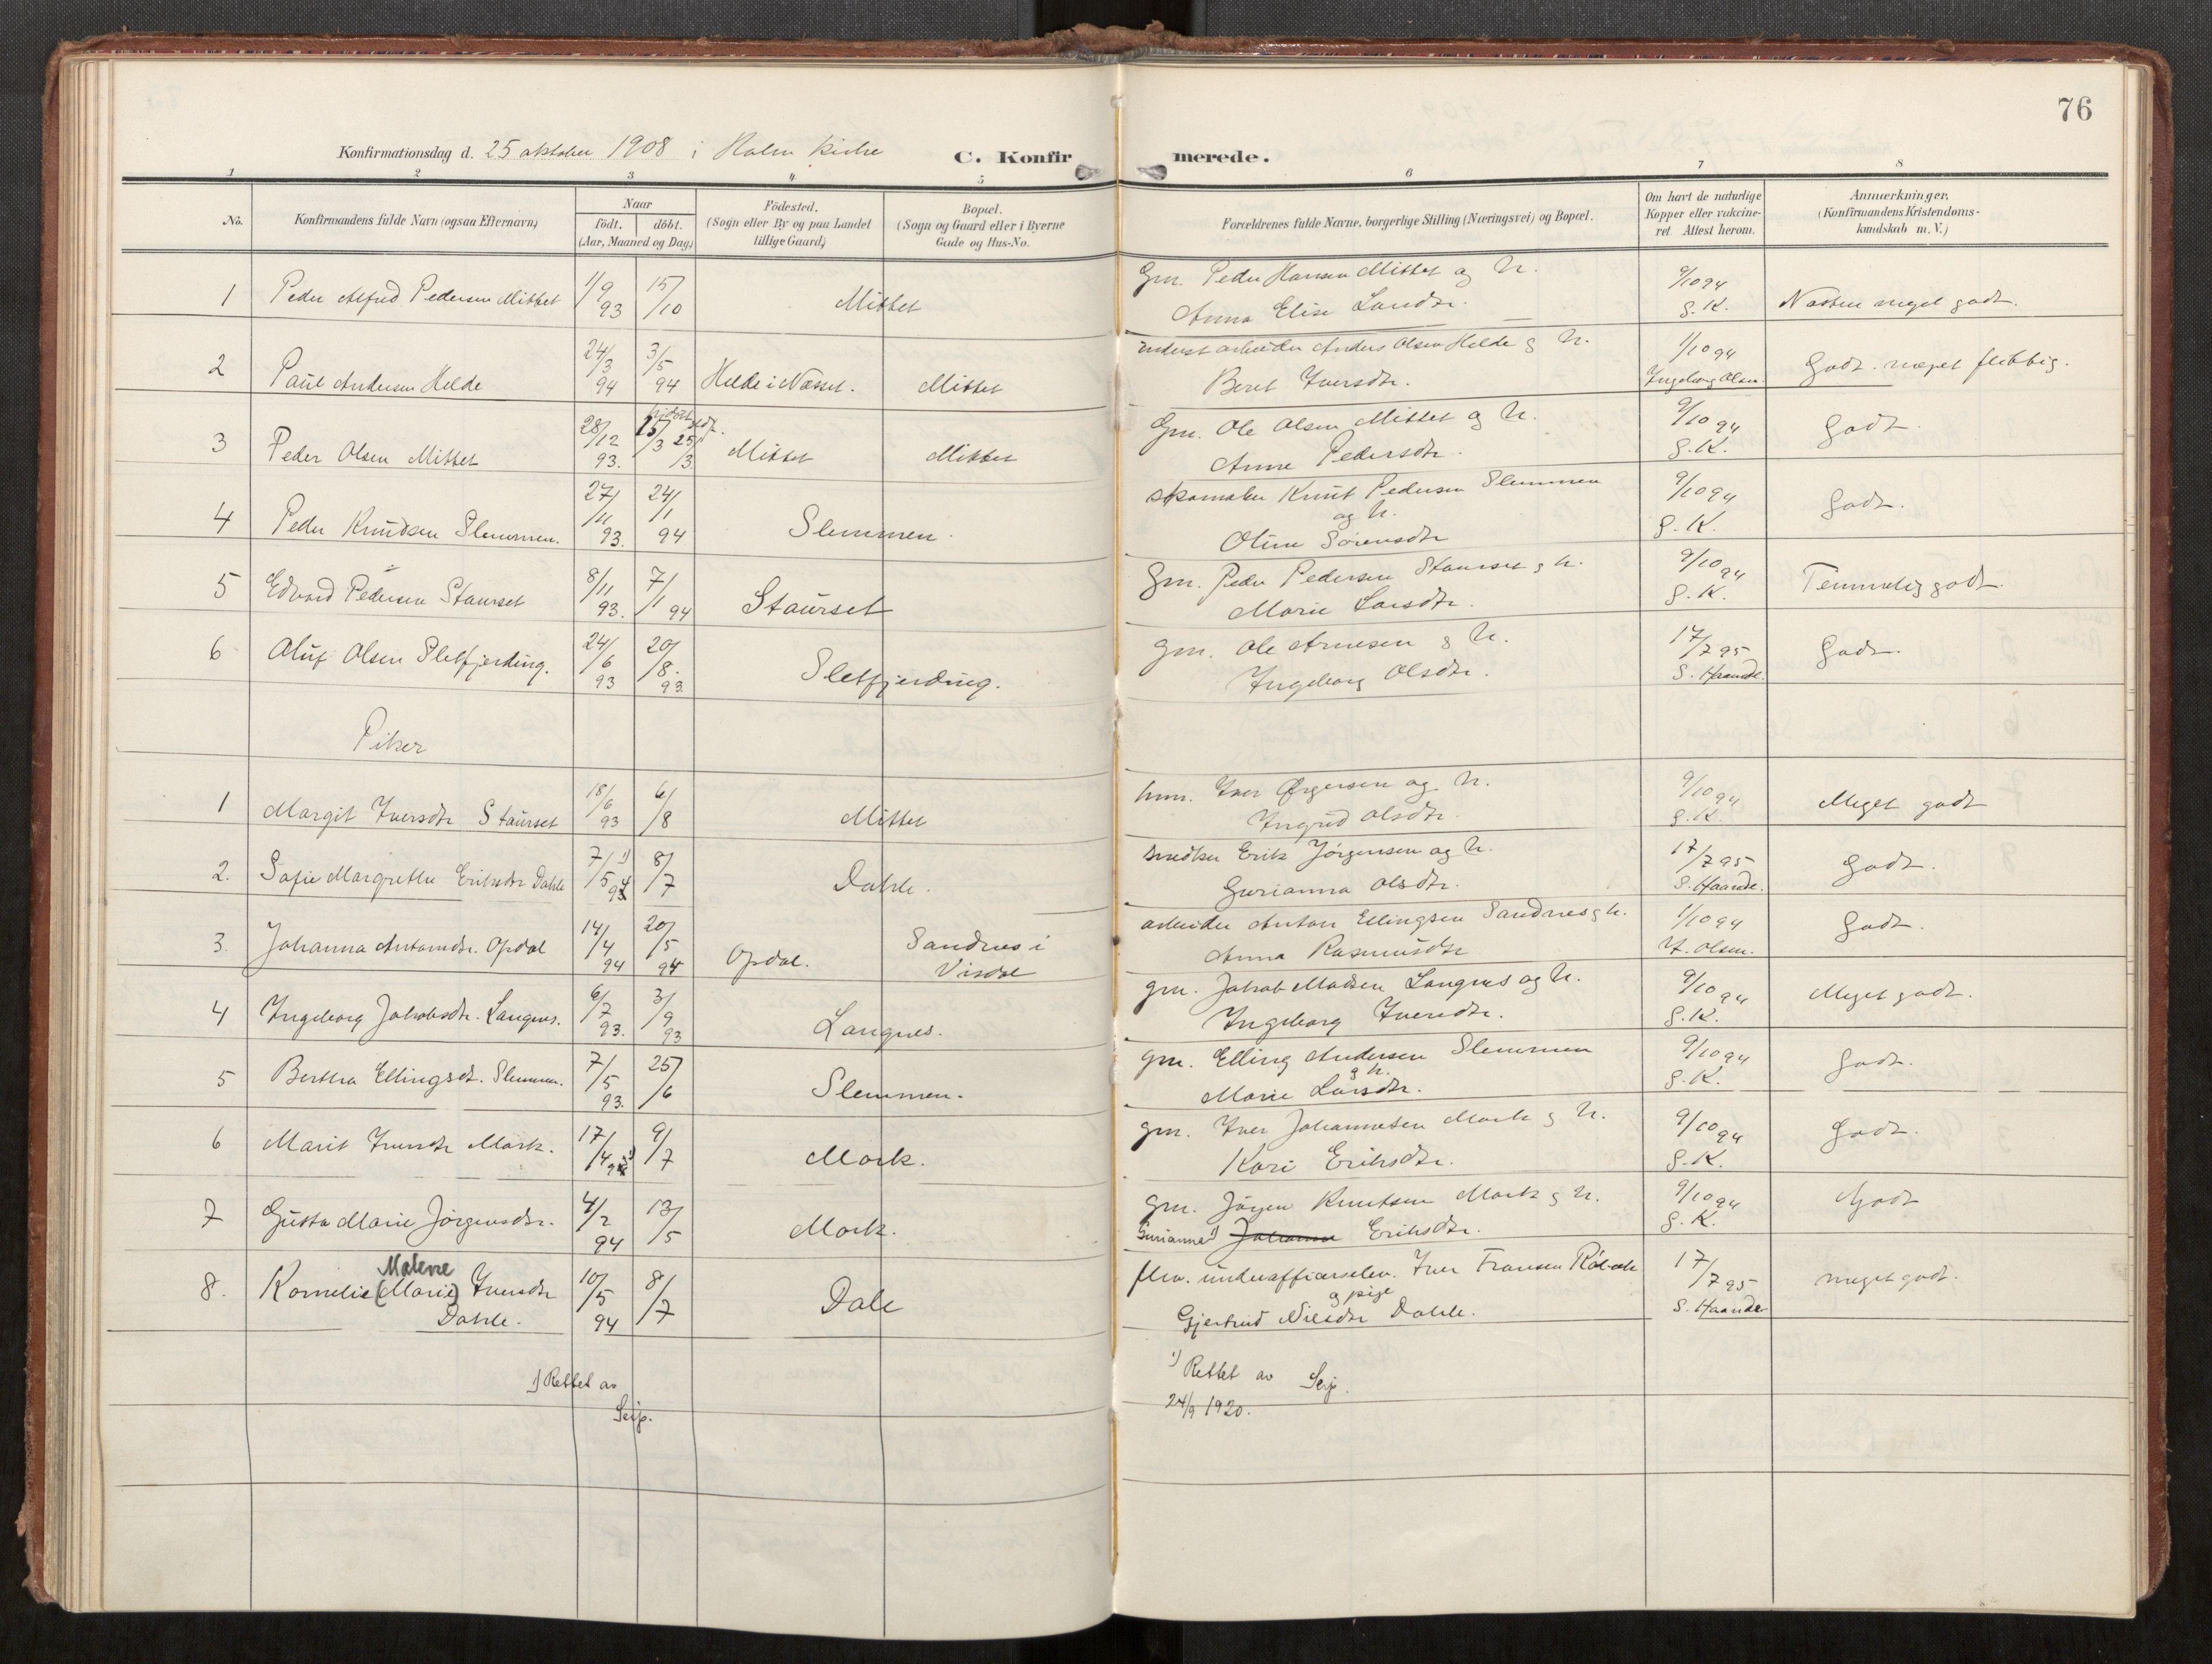 76
Konfirmationsdag d. 25 oktober 1908 i Holm kirke
C. Konfirmerede.
1 2 3 4 5 6 7 8
No. Konfirmandens fulde Navn (ogsaa Efternavn) Naar födt. döbt. (Aar, Maaned og Dag) Födested. (Sogn eller By og paa Landet tillige Gaard) Bopæl. (Sogn og Gaard eller i Byerne Gade og Hus-No. Forældrenes fulde Navne, borgerlige Stilling (Næringsvei) og Bopæl. Om havt de naturlige Kopper eller vakcineret. Attest herom. Anmærkninger. (Konfirmandens Kristendomskundskab m. V.)
1 Peder Alfred Pedersen Mittet 1/9 93 15/10 Mittet Gm. Peder Hansen Mittet og h. 9/10 94 S. K. Næsten meget godt.
Anna Elise Larsdtr.
2 Paul Andersen Helde 24/3 94 3/5 94 Helde i Nesset. Mittet inderst arbeider Anders Olsen Helde og h. 1/10 94 Ingeborg Olsen Godt. meget flittig.
Beret Iversdtr.
3 Peder Olsen Mittet 28/12 93. 15/3 25/3 Mittet Mittet Gm. Ole Olsen Mittet og h. 9/10 94 S. K. Godt.
Anne Pedersdtr.
4 Peder Knudsen Slemmen. 27/11 93. 24/1 94 Slemmen. skomaker Knut Pedersen Slemmen og h. 9/10 94 S. K. Godt.
Oline Sörensdtr
5 Edvard Pedersen Staurset 8/11 93. 7/1 94 Staurset Gm. Peder Pedersen Staurset og h. 9/10 94 S. K. Temmelig godt.
Marie Larsdtr.
6 Oluf Olsen Sletfjerding. 24/6 93 20/8. 93. Sletfjerding. gm. Ole Arnesen og h. 17/7 95 S. Haande. Godt.
Ingeborg Olsdtr.
Piker
1 Margit Iversdtr Staurset 18/6 93 6/8 Mittet hmn. Iver Ørgersen og h. 9/10 94 S. K. Meget godt
Ingrid Olsdtr.
2. Sofie Margrethe Eriksdtr Dahle 7/5 94 1) 8/7 Dahle. snedker Erik Jörgensen og h. 17/7 95 S. Haande. Godt.
Gurianna Olsdtr.
3. Johanna Antonsdtr. Opdöl 14/4 94 20/5 94 Opdöl. Sandnes i Visdal arbeider Anton Ellingsen Sandnes og h. 1/10 94 I. Olsen. Godt.
Anna Rasmusdtr
4 Ingeborg Jakobsdtr. Langnes. 6/7 93. 3/9 93 Langnes. gm. Jakob Madsen Langnes og h. 9/10 94 S. K. Meget godt.
Ingeborg Iversdtr.
5 Bertha Ellingsdt. Slemmen. 7/5 93. 25/6 Slemmen. gm. Elling Andersen Slemmen og h. 9/10 94 S. K. Godt.
Marie Larsdtr.
6 Marit Iversdtr Mork. 17/4 94 1) 9/7 Mork. gm. Iver Johannesen Mork og h. 9/10 94 S. K. Godt.
Kari Eriksdtr.
7 Gusta Marie Jörgensdtr. 4/2 94 13/5 Mork. gm. Jörgen Knutsen Mork og h. 9/10 94 S. K. Godt
Gurianna 1) Johanna Eriksdtr.
8. Kornelie (Marie) Malene Iversdtr Dahle. 10/5 94 8/7 Dale fhv. underofficerselev. Iver Fransen Rödal og pige 17/7 95 S. Haande meget godt.
Gjertrud Nilsdtr Dahle.
1) Rettet av
Seip.
1) Rettet av Seip.
24/9 1920.